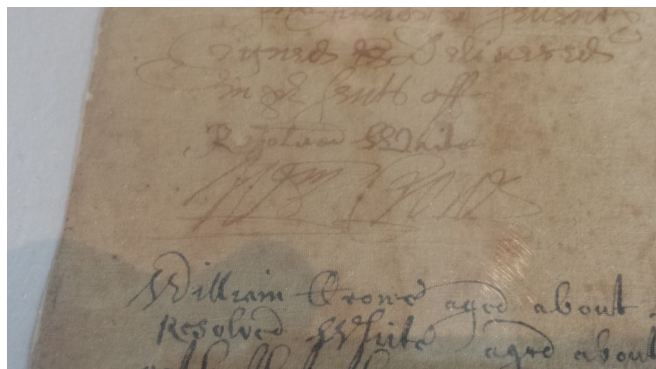 Signed & Delivered
in pr sents off
Resolved White
Wm Crowe
William Crowe aged about
Resolved White aged about